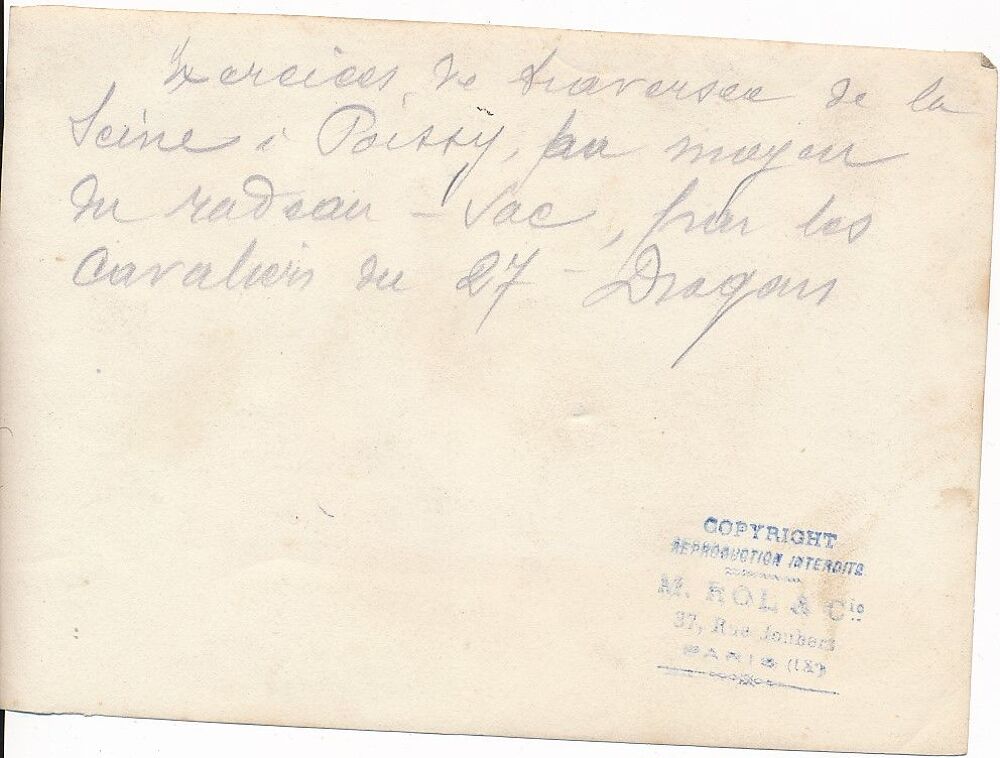 Exercices de traversee de la
Seine à Poissy, au moyen
du radeau - Sac, par les
Cavaliers du 27 - Dragons
COPYRIGHT
REPRODUCTION INTERDITE
M. ROL & Cie
37, Rue Joubert
PARIS (IXe)